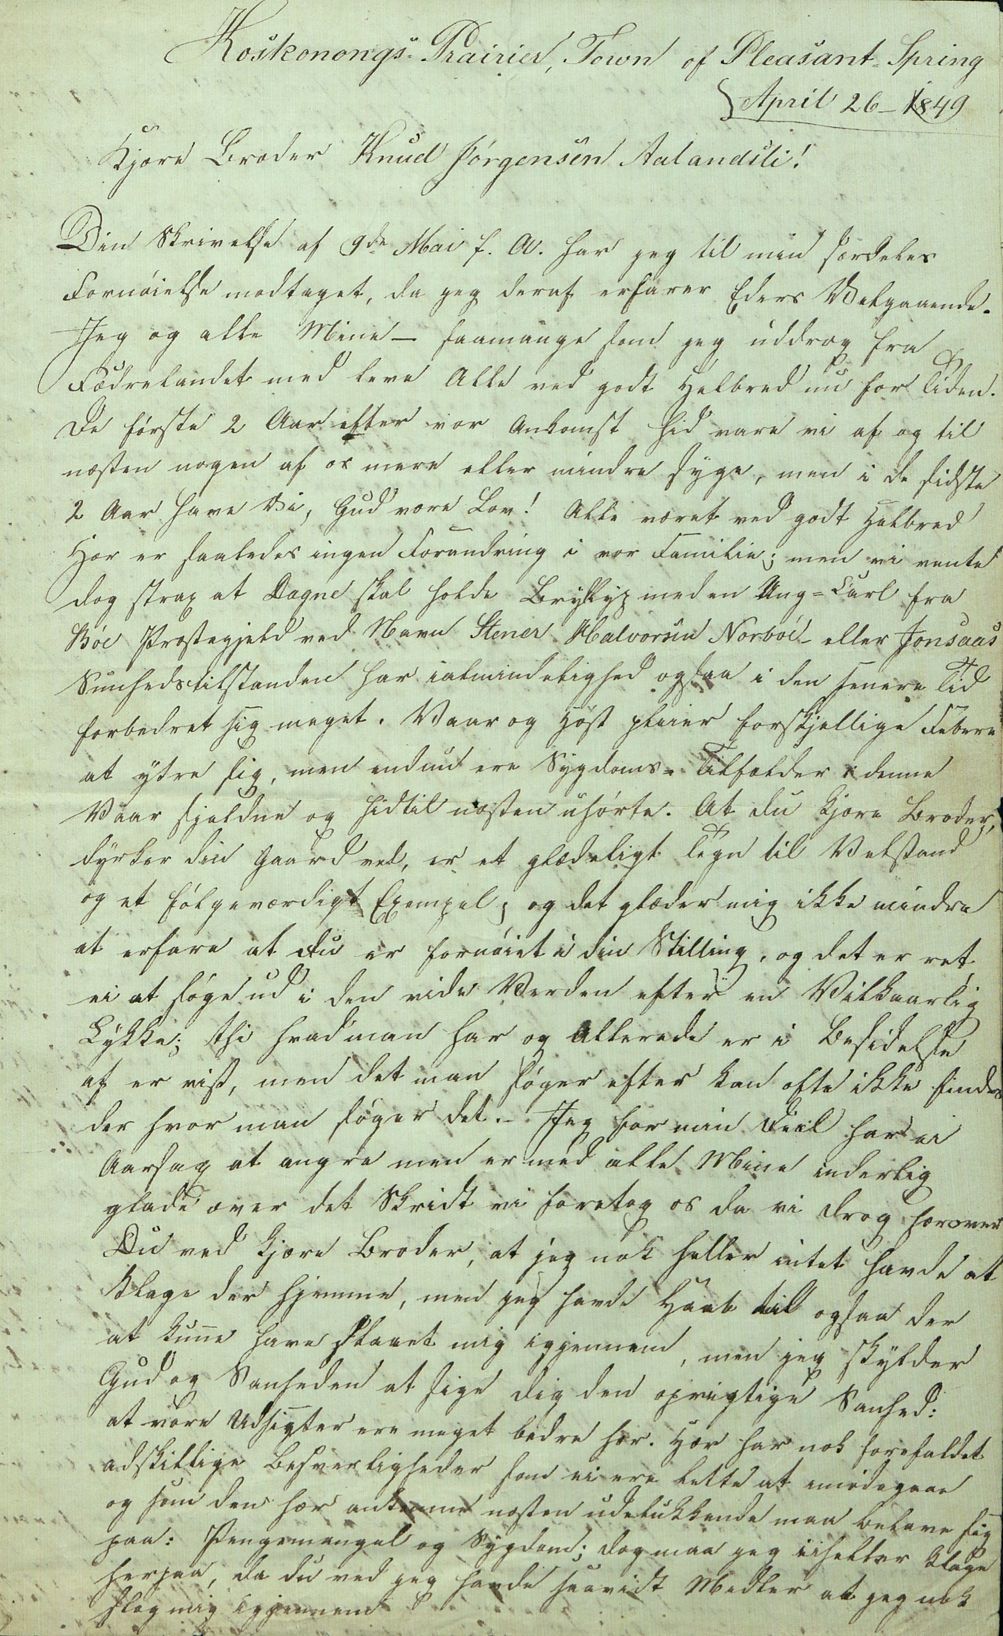 Koskonongs-Prairier, Town of Pleasant-Spring
April 26-1849
Kjære Broder Knud Jørgensen Aalandslie!
Din Skrivelse af 9de Mai f. A. har jeg til min særdeles
Fornøielse modtaget, da jeg deraf erfarer Eders Velgaaende.
Jeg og alle Mine — saamange som jeg uddrog fra
Fædrelandet med leve Alle ved godt Helbred nu for Tiden.
De første 2 Aar efter vor Ankomst hid vare vi af og til
næsten nogen af os mere eller mindre syge, men i de sidste
2 Aar have Vi, Gud være Lov! Alle været ved godt Helbred
Her er saaledes ingen Forandring i vor Familie; men vi vente
dog strax at Dagne skal holde Bryllup med en Ung-Karl fra
Bøe Præstegjeld ved Navn Stener Halvorsen Norbøe eller Jonsaas
Sunhedstilstanden har ialmindelighed ogsaa i den senere Tid
forbedret sig meget. Vaar og Høst pleier forskjellige Febere
at ytre sig, men endnu ere Sygdoms-Tilfælder i denne
Vaar sjeldne og hidtil næsten uhørte. At du kjære Broder,
dyrker din Gaard vel, er et glædeligt Tegn til Velstand
og et følgeværdigt Exempel; og det glæder mig ikke mindre
at erfare at du er fornøiet i din Stilling, og det er ret
ei at søge ud i den vide Verden efter en Vilkaarlig
Lykke; thi hvad man har og Allerede er i Besidelse
af er vist, men det man søger efter kan ofte ikke findes
der hvor man søger det.- Jeg for min Deel har ei
Aarsag at angre men er med alle Mine inderlig
glade over det Skridt vi foretog os da vi drog herover
Du ved kjære Broder, at jeg nok heller intet havde at
klage der hjemme, men jeg havde Haab til ogsaa der
at kunne have slaaet mig igjennem, men jeg skylder
Gud og Sanheden at sige dig den oprigtige Sanhed:
at vore Udsigter ere meget bedre her. Her har nok forefaldet
adskillige Besverligheder som ei ere lette at imødegaae
og som den her ankomne næsten udelukkende maa belave sig
paa: Pengemangel og Sygdom; dog maa jeg ei heller klage
herpaa, da du ved jeg havde saavidt Medler at jeg nok
slog mig igjennem